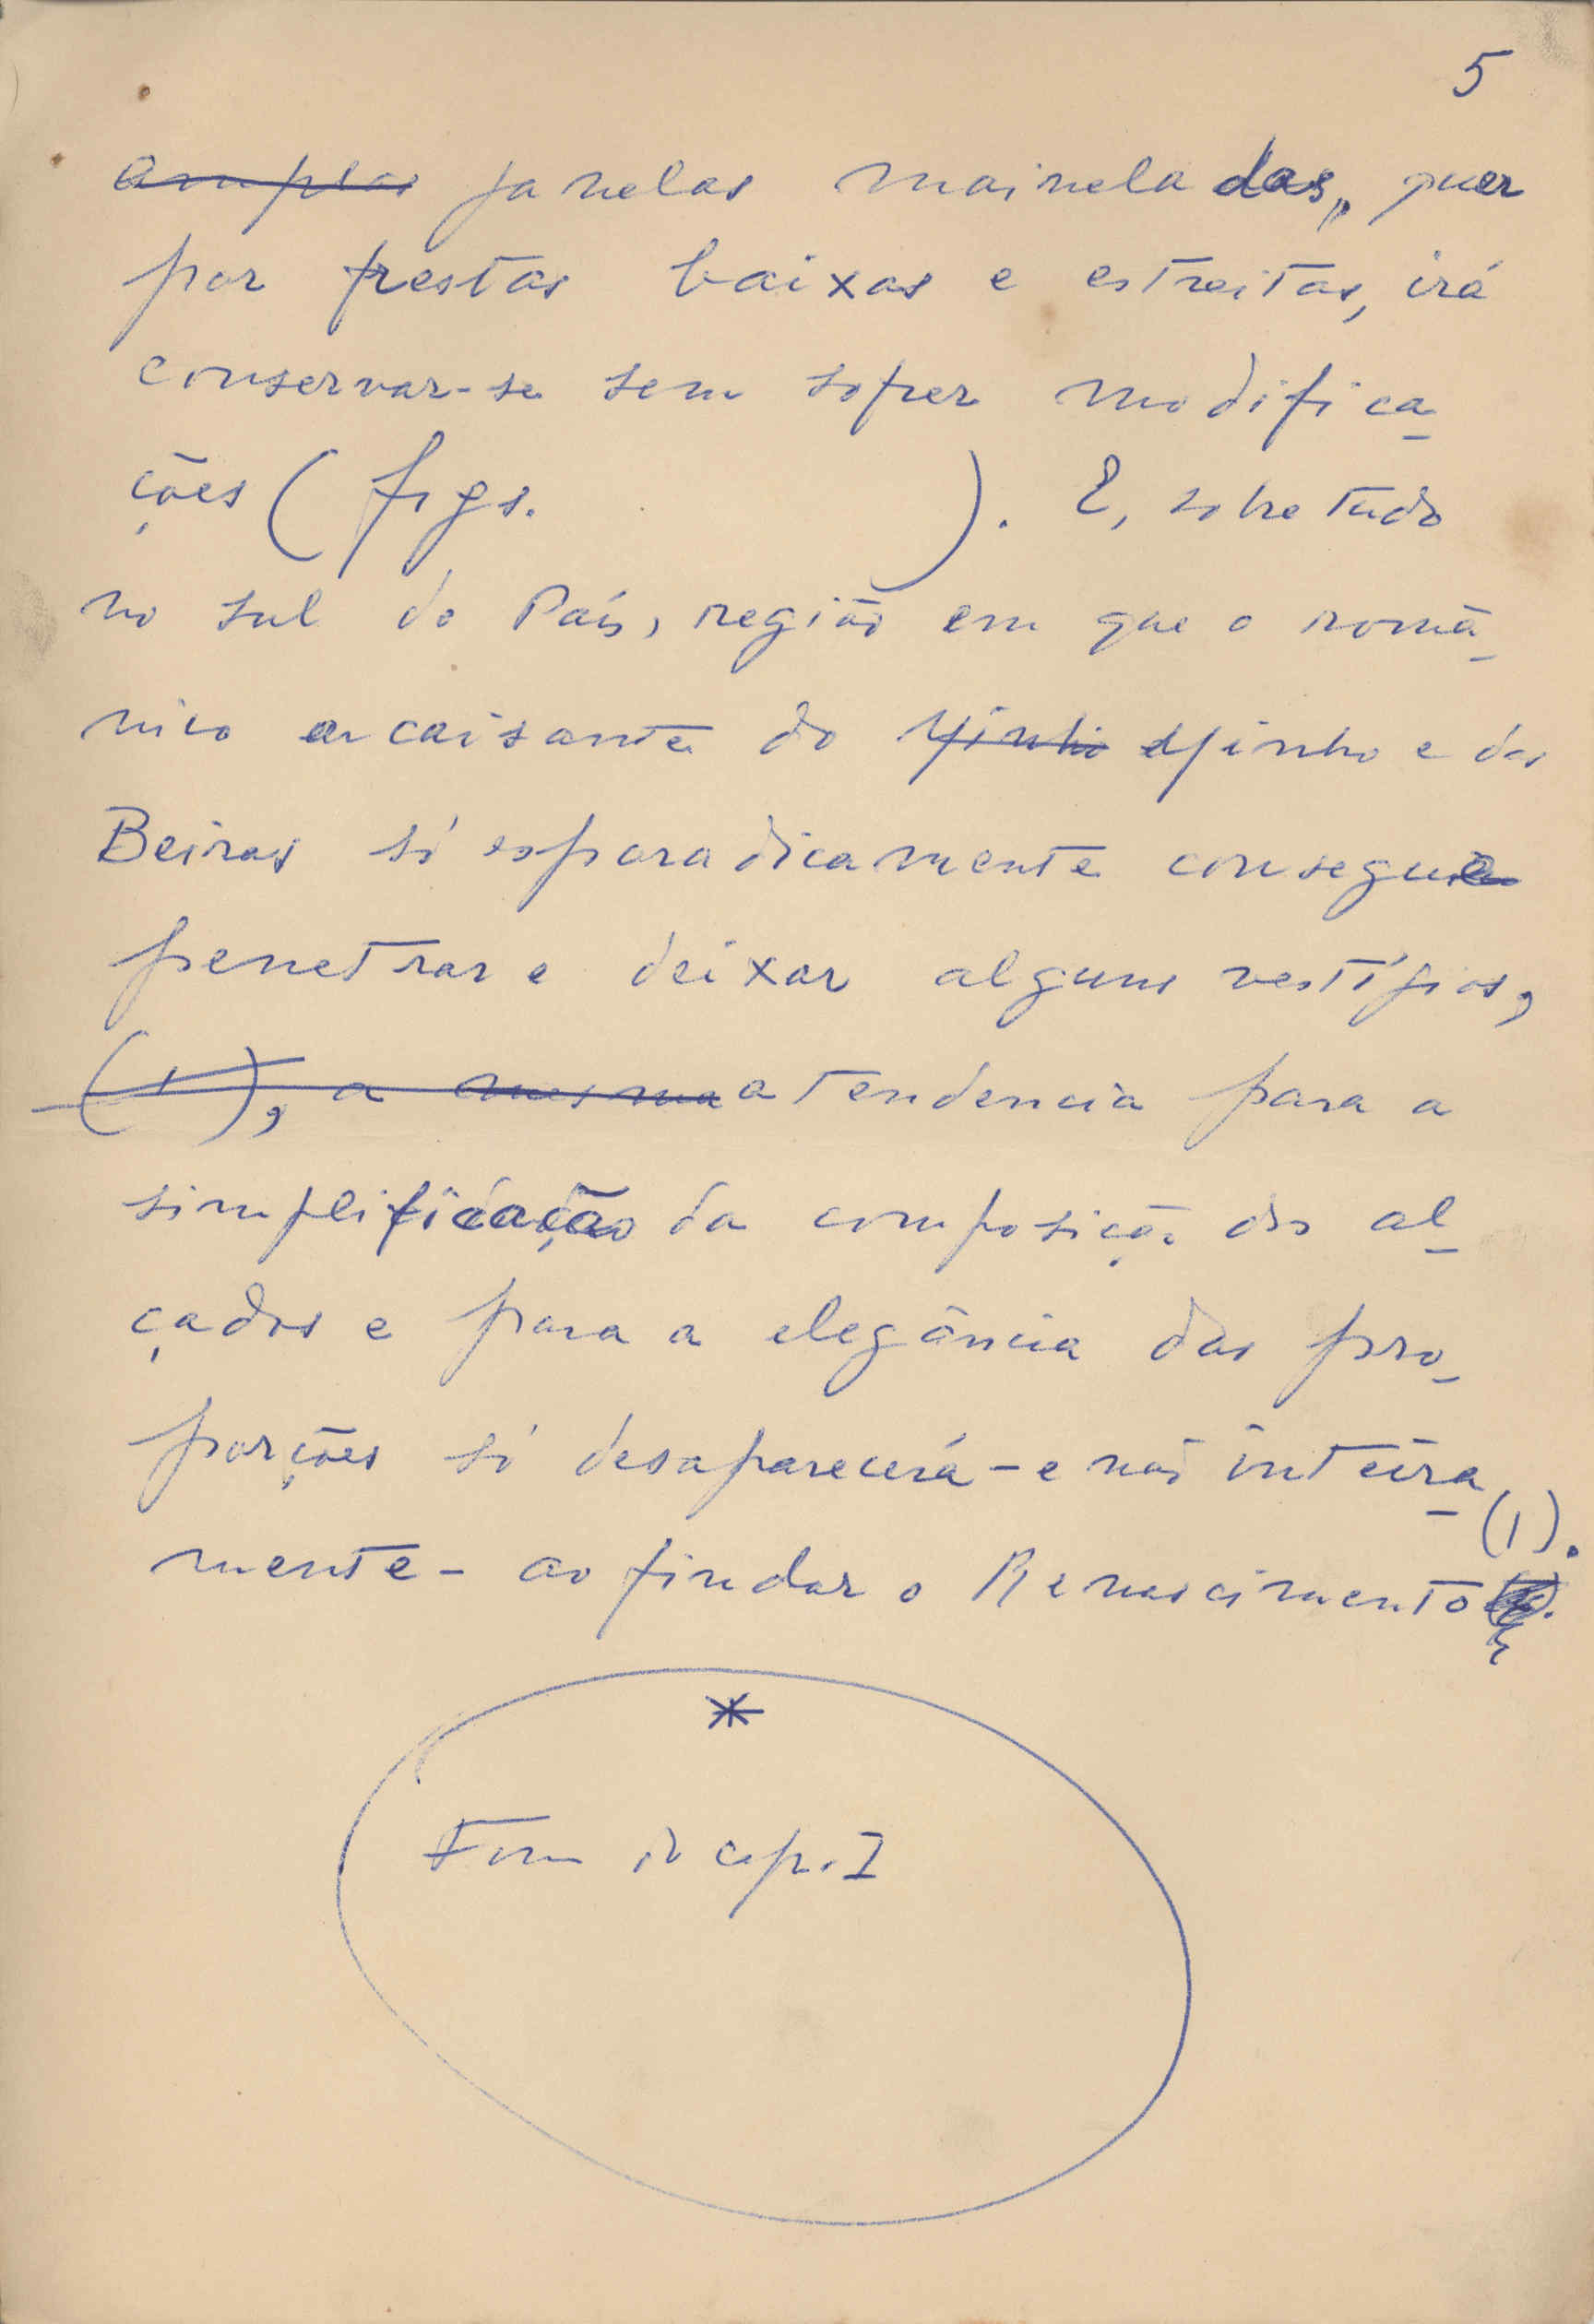 5
amplas janelas maineladas, quer
por frestas baixas e estreitas, irá
conservar-se sem sofrer modifica-
ções (figs. ). E, sobretudo
no sul do País, região em que o româ-
nico arcaisante do Minho Minho e das
Beiras só esporadicamente consegue
penetrar e deixar alguns vestígios,
(1), a mesma a tendencia para a
simplificação da composição dos al-
çados e para a elegância das pro-
porções só desaparecerá - e não inteira-
mente - ao findar o Renascimento (1).
*
Fim do cap. I